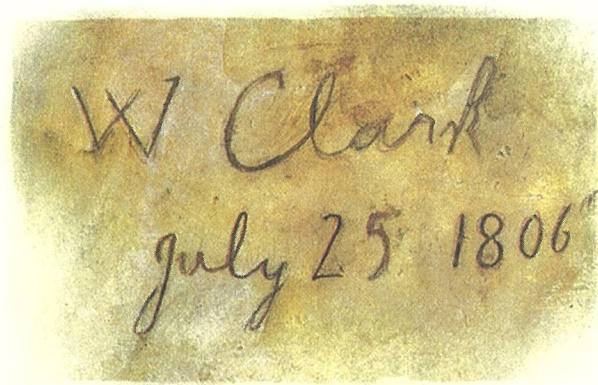 W Clark
July 25 1806